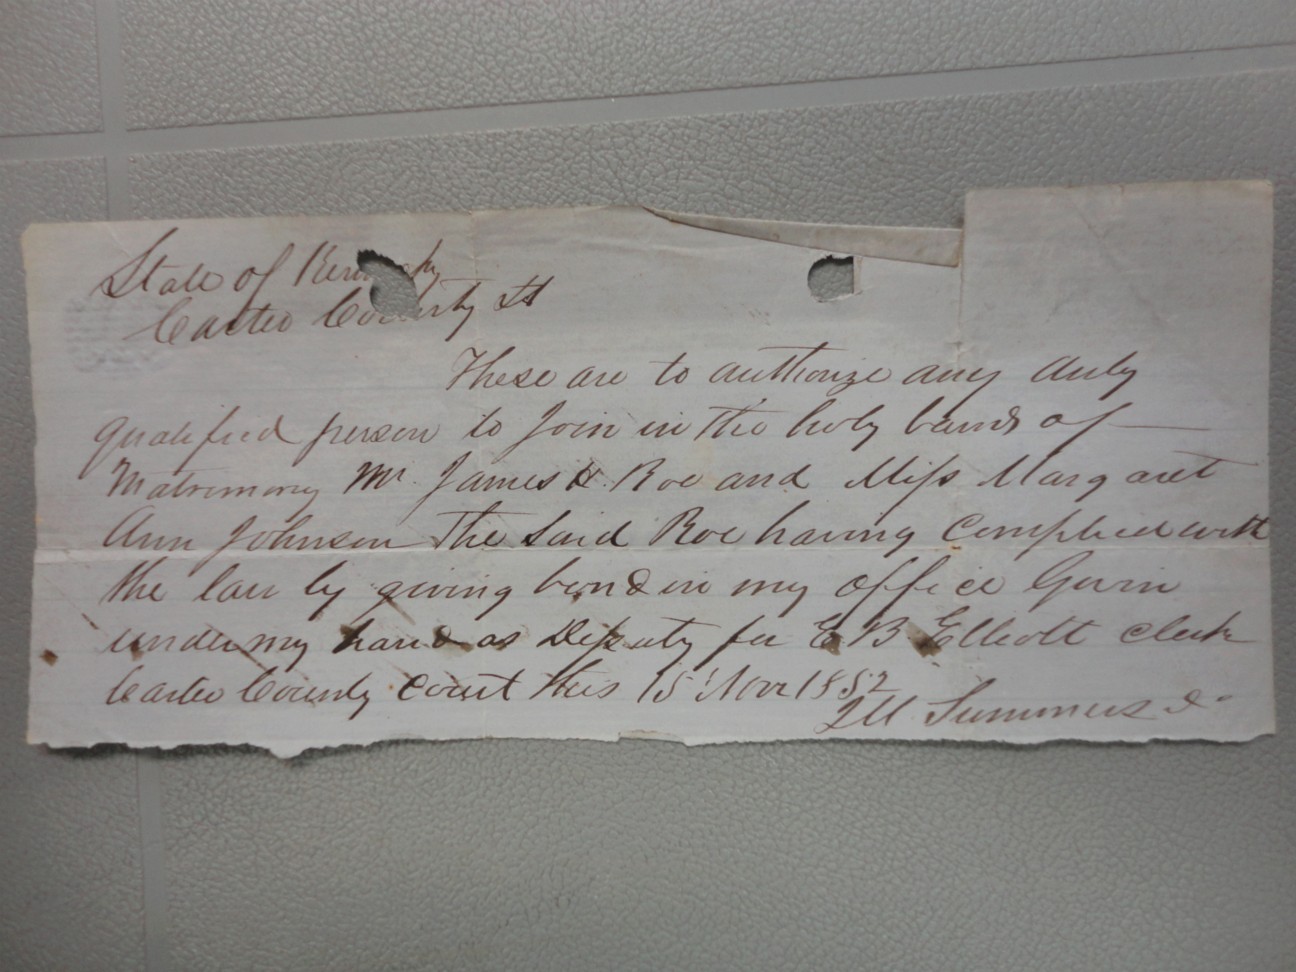 State of Ken ky
Carter County Sct
These are to authorize any duly
qualified person to Join in the holy bands of
Matrimony Mr. James H. Roe and Miss Margaret
Ann Johnson The Said Roe having Complied with
the law by giving bond in my office Givin
under my hand as Deputy for E B Elliott clerk
Carter County Court this 15' Novr 1852
Summers